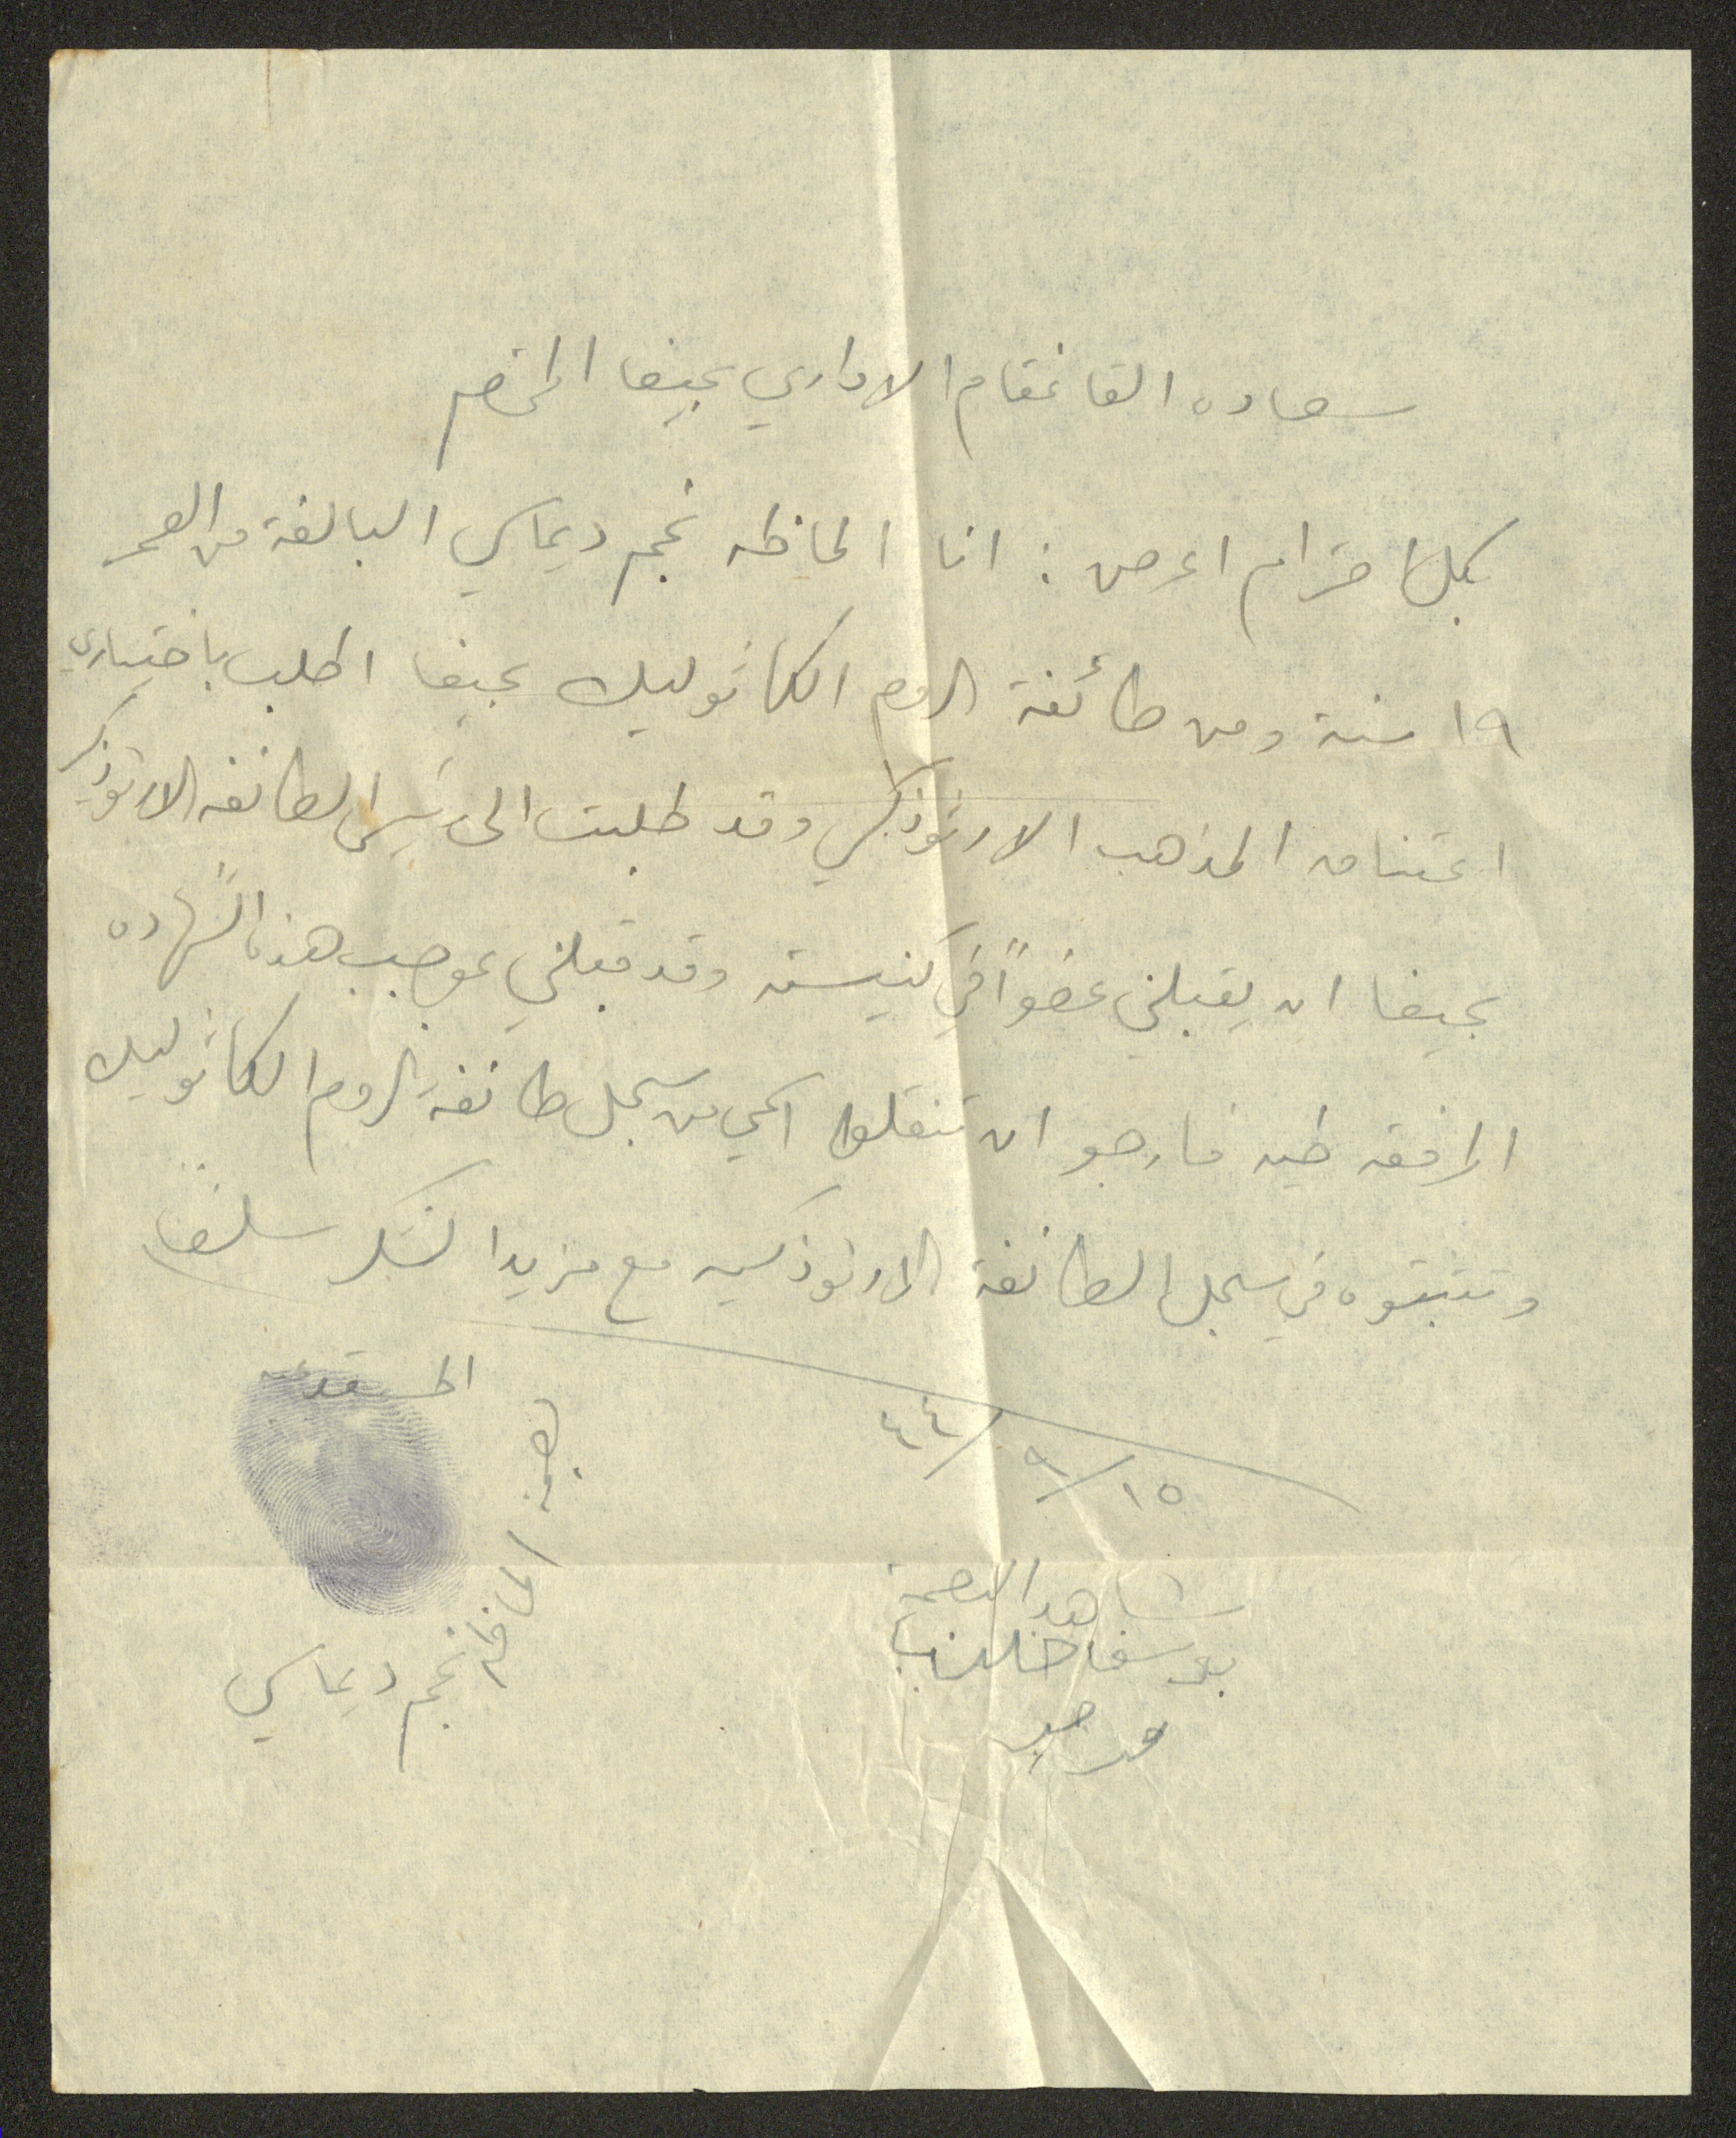 سعاده القائمقام الاداري بحيفا المحترم
بكل احترام اعرض : انا الحافظه نجم ديماسي البالغة من العمر
١٩ سنة ومن طائفة الروم الكاثوليك بحيفا اطلب باختياري
اعتناق المذهب الارثوذكسي وقد طلبت الى رئيس الطائفه الارثوذكسيه
بحيفا ان يقبلني عضواً في كنيسته وقد قبلني بموجب هذه الشهاده
المرافقه طيه فارجو ان تنقلوا اسمي من سجل طائفة الروم الكاثوليك
وتثبتوه في سجل الطائفة الارثوذكسيه مع مزيد الشكر سلفاً
المستدعيه
١٥/٩/٤٤
بصمة الحافظه نجم ديماسي
شاهد البصمة
يوسف